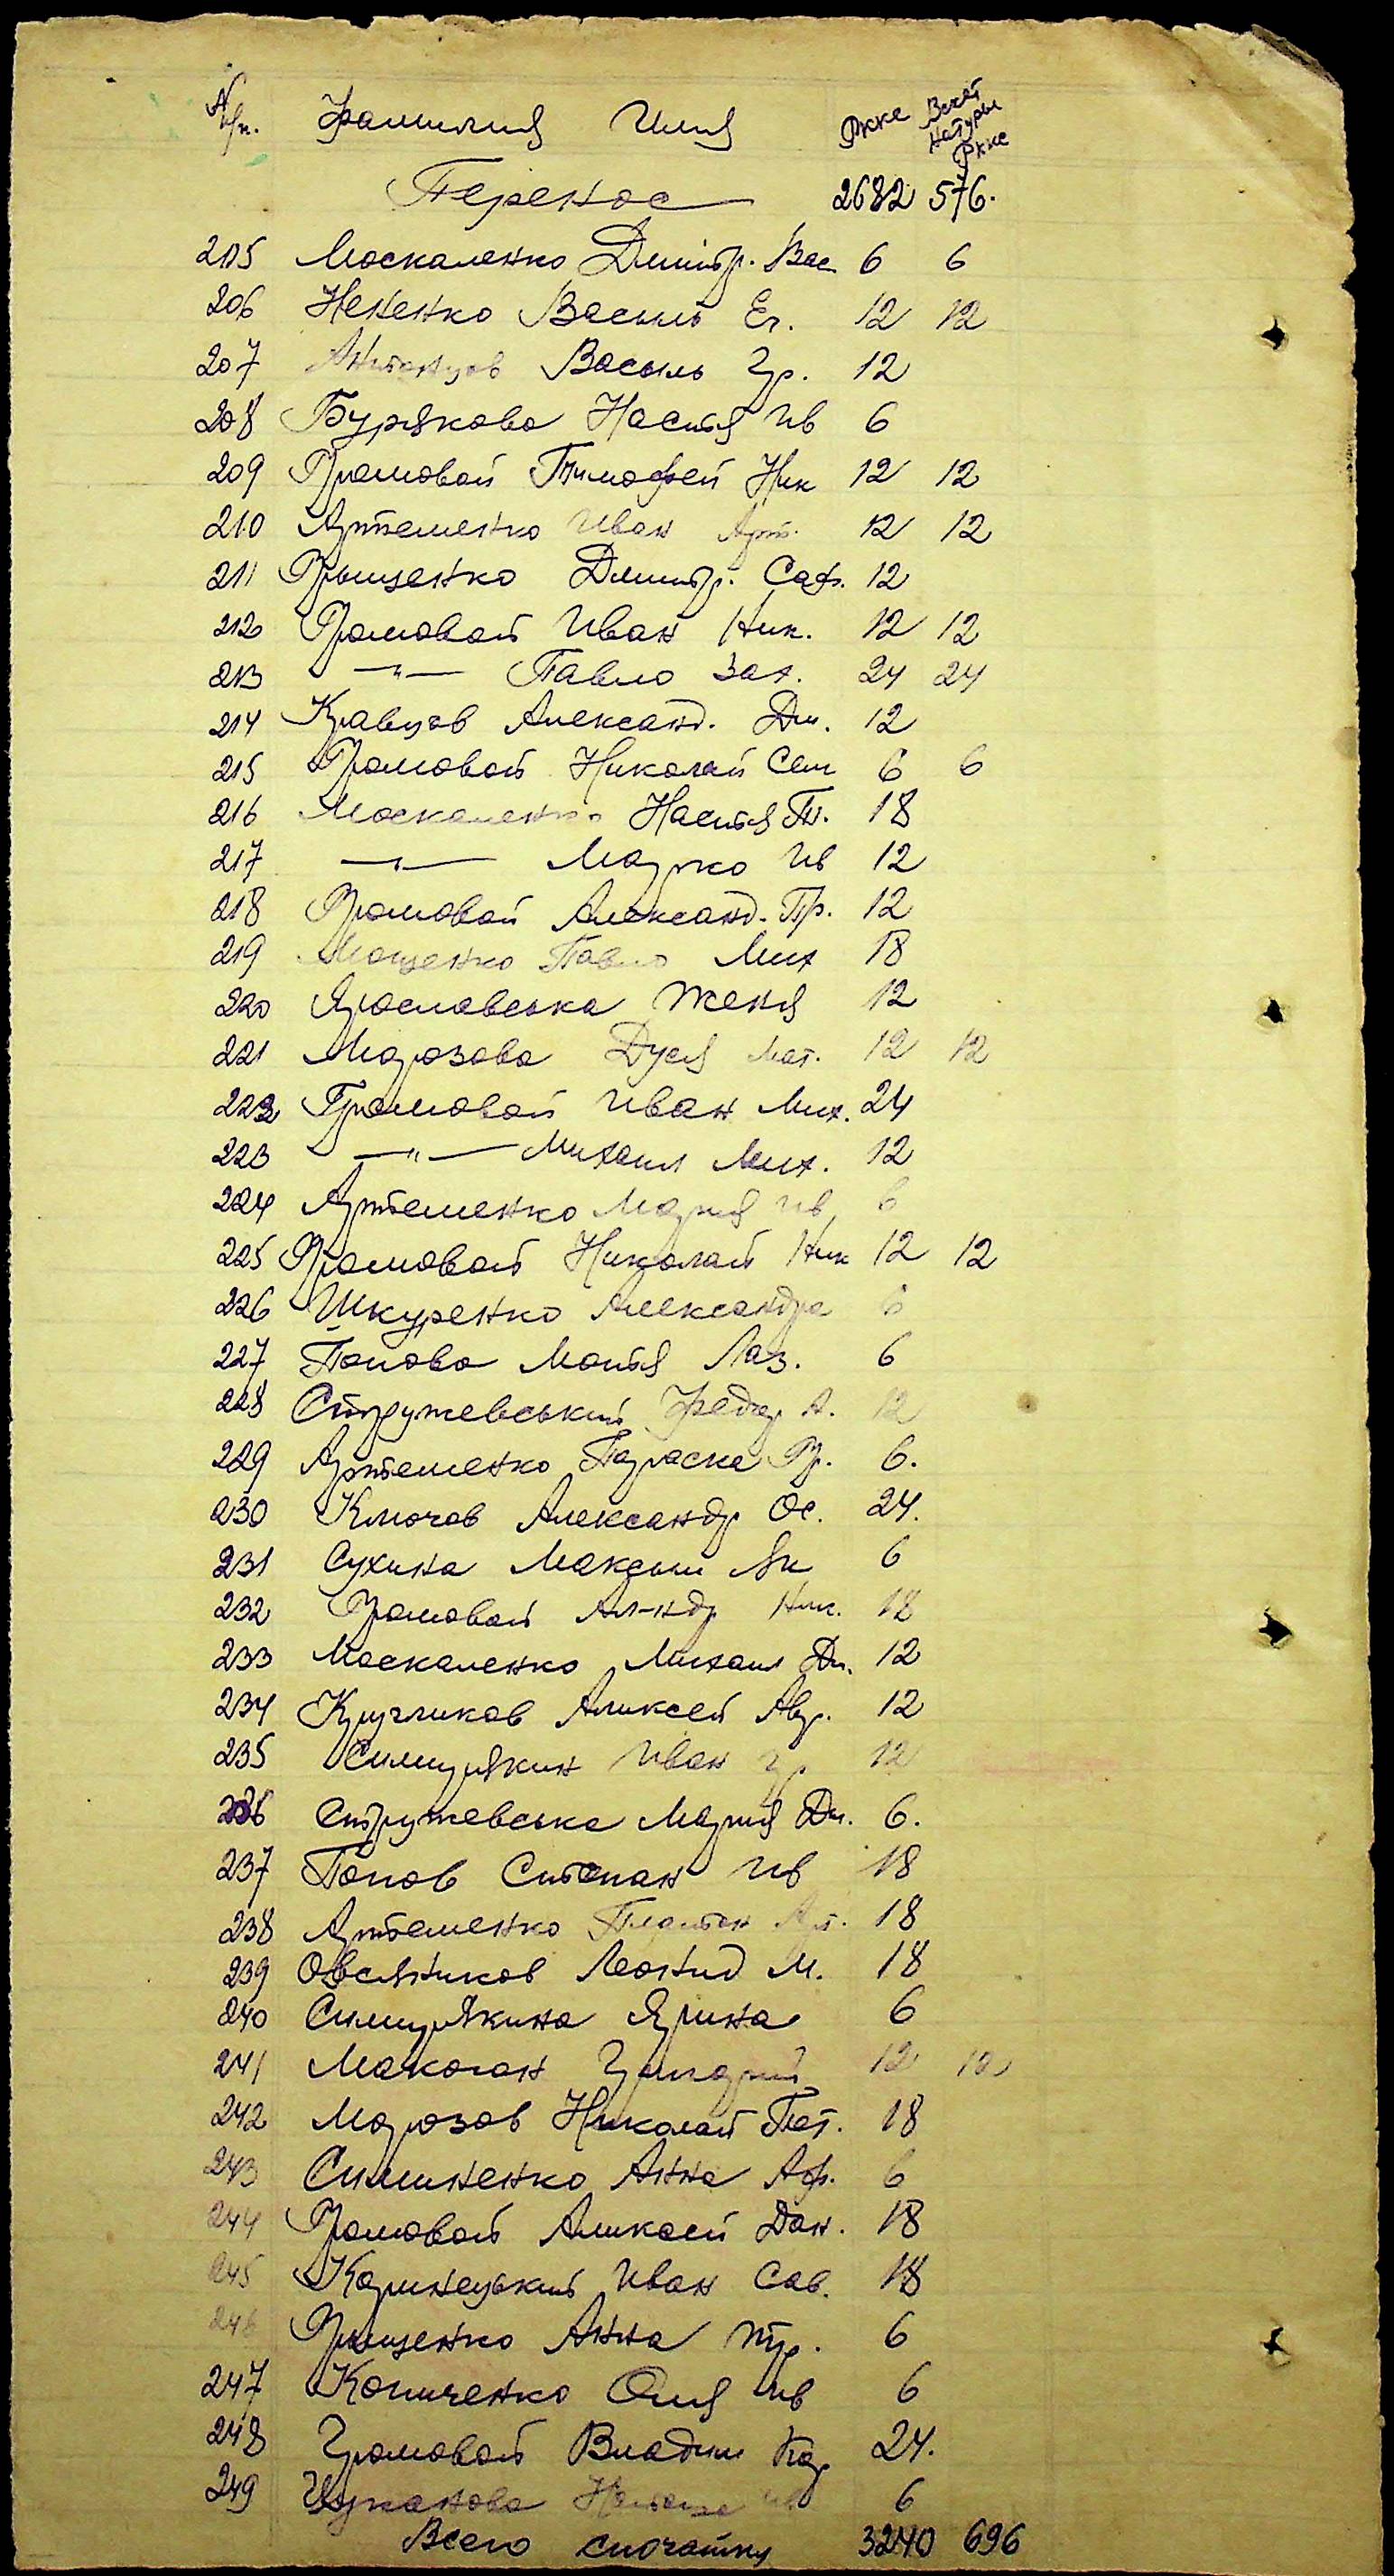 № п/п. Фамилия Имя Ркка В счет Натуры Ркка
Перенос 2682 576.
205 Москаленко Дмитр. Вас 6 6
206 Нененко Василь Ег. 12 12
207 Василь Гр. 12
208 Бурякова Настя Ив 6
209 Громовой Тимофей Ник 12 12
210 Артеменко Иван Арт. 12 12
211 Грыщенко Дмитр. Саф. 12
212 Громовой Иван Ник. 12 12
213 —"— Павло Зах. 24 24
214 Кравцов Александ. Дм. 12
215 Громовой Николай Сем 6 6
216 Москаленко Настя Т. 18
217 —"— Марко Ив 12
218 Громовой Александ. Пр. 12
219 Мощенко Павло Мих 18
220 Ярославська Женя 12
221 Марозова Дуся Мат. 12 12
222 Громовой Иван Мих. 24
223 —"— Михаил Мих. 12
224 Артеменко Мария Ив 6
225 Громовой Николай Ник 12 12
226 Шкуренко Александра 6
227 Попова Мотя Лаз. 6
228 Стружевський Федор А. 12
229 Артеменко Параска Гр. 6.
230 Ключов Александр Ос. 24.
231 Сухина Максим Як 6
232 Громовой Ал-ндр Ник. 18
233 Москаленко Михаил Дм. 12
234 Кругликов Аликсей Авр. 12
235 Симулякин Иван Гр 12
236 Стружевська Мария Дм. 6.
237 Попов Степан Ив 18
238 Артеменко Платон Арт. 18
239 Овсяников Леонид М. 18
240 Симулякина Ярина 6
241 Макоган Григорий 12 12
242 Марозов Николай Пет. 18
243 Симиненко Анна Аф. 6
244 Громовой Аликсей Дан. 18
245 Каринецький Иван Сав. 18
246 Грыщенко Анна 6
247 Копиченко Оля Ив 6
248 Громовой Владим Кар 24.
249 Цуканова Наташа Ив 6
Всего спочатку 3240 696